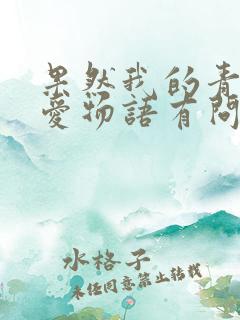 果然我的青
愛物語有問
水格子
未经同意禁止转载